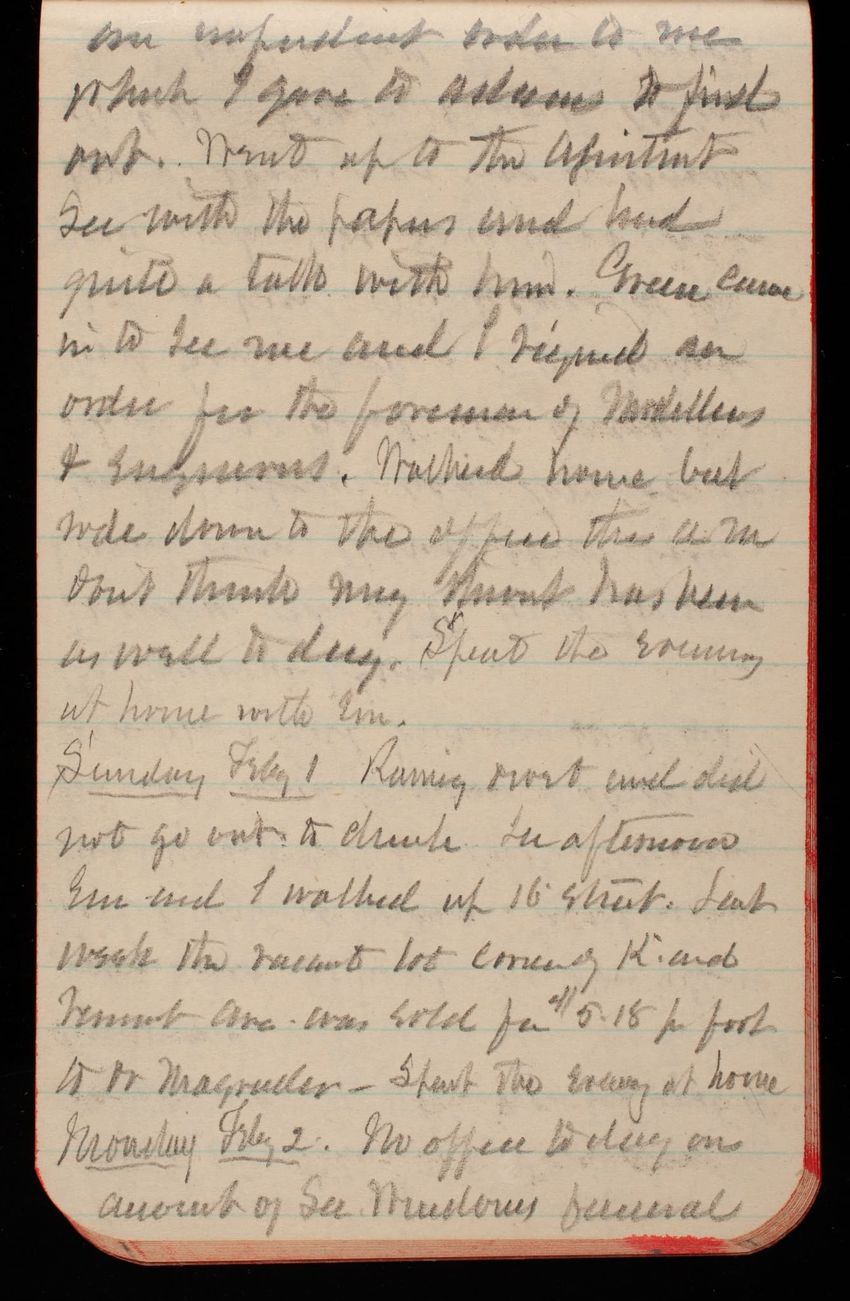 an impudent order to me
which I gave to Adams to find
out. Went up to the Assistant
Sec with the papers and had
quite a talk with him. Green came
in to see me and I signed an
order for the foreman of Modellers
& Engravers. Walked home but
rode down to the office this a m
dont think my throat has been
as well to day. Spent the evening
at home with Em.
Sunday Feby 1 Raining most and did
not go out to church In afternoon
Em and I walked up 16 Street. Last
week the vacant lot corner of K and
Vermont ave. was sold for $5.18 p foot
to Dr Magruder - Spent the evening at home
Monday Feby 2. No office to day on
account of Sec Windoms funeral